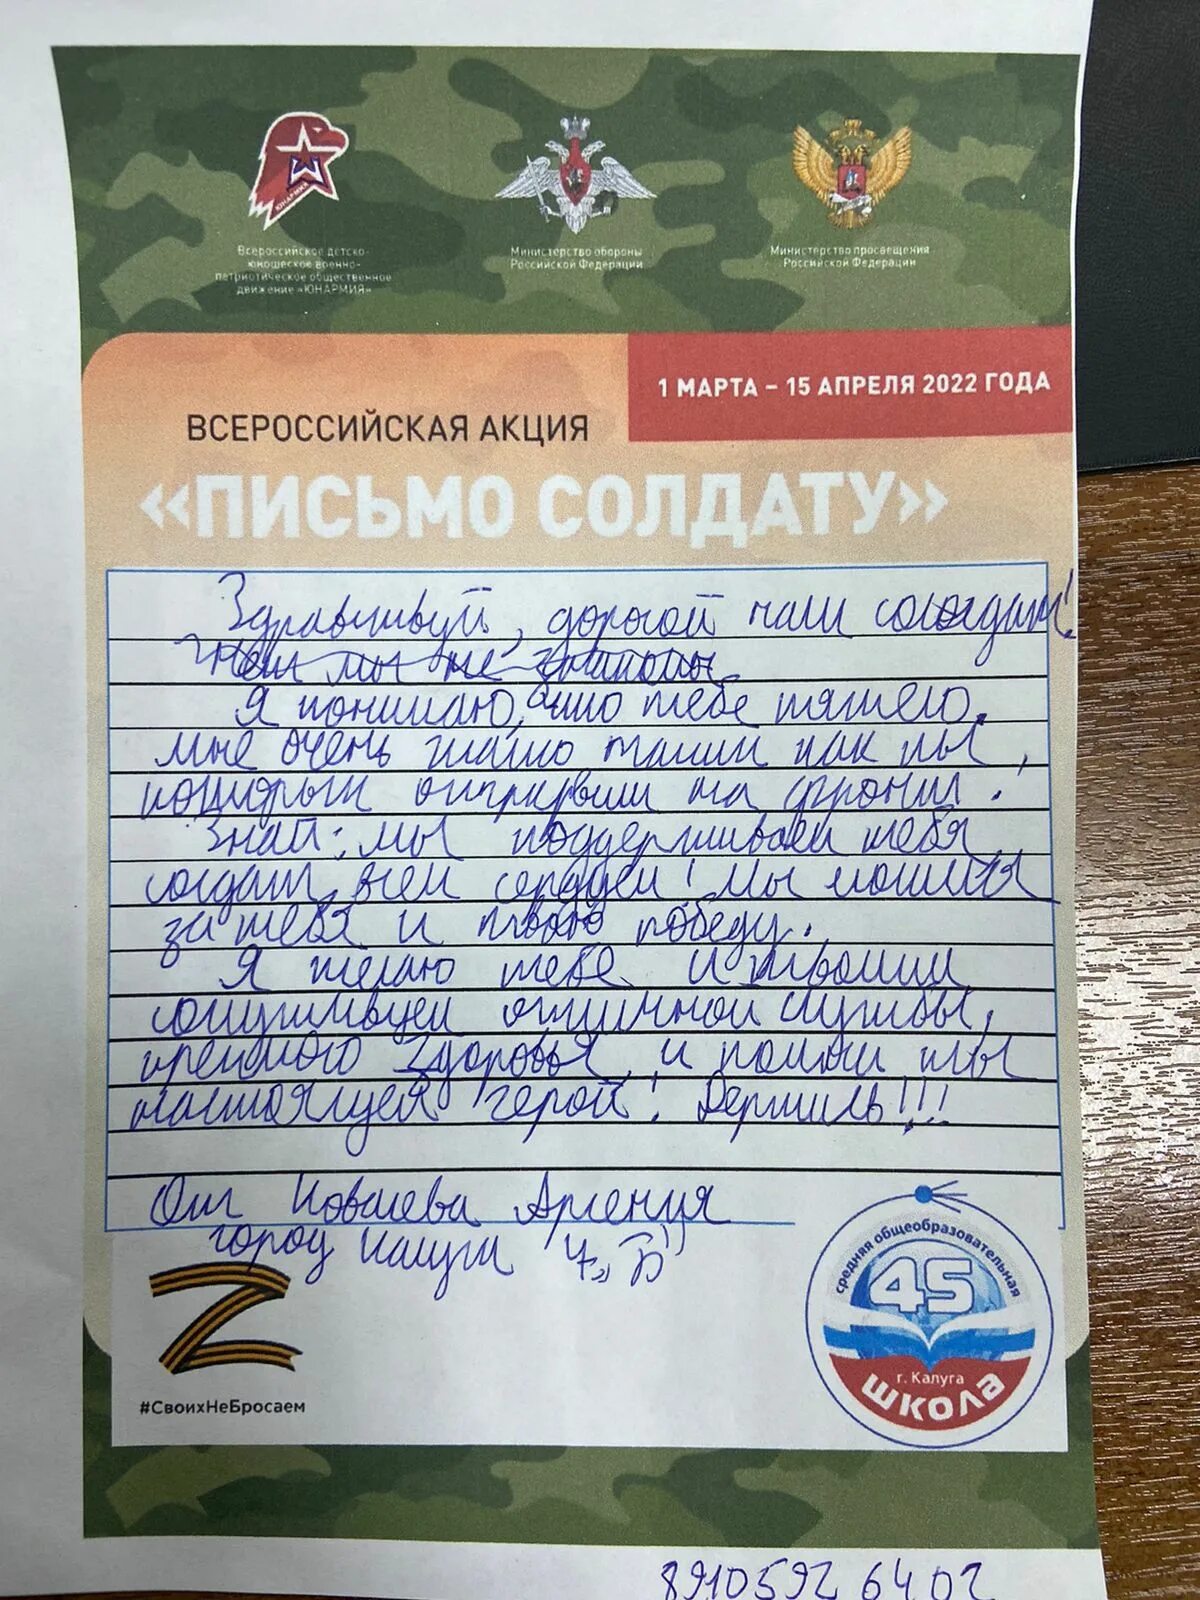 ЮНАРМИЯ
Всероссийское детско-
юношеское военно-
патриотическое общественное
движение «ЮНАРМИЯ»
Министерство обороны
Российской Федерации
Министерство просвещения
Российской Федерации
1 МАРТА – 15 АПРЕЛЯ 2022 ГОДА
ВСЕРОССИЙСКАЯ АКЦИЯ
«ПИСЬМО СОЛДАТУ»
Здравствуй, дорогой наш солдат!
мы не знакомы
Я понимаю, что тебе тяжело.
мне очень жалко таких как ты,
которых отправили на фронт.
Знай: мы поддерживаем тебя
солдат, всем сердцем! Мы молимся
за тебя и твою победу.
Я желаю тебе и твоим
сослуживцем отличной службы,
крепкого здоровья, и помни ты
настоящей герой! Держись!!!
От Ковалева Арсения
город Калуга 4 „Б"
#СвоихНеБросаем
средняя общеобразовательная
45
г. Калуга
школа
8910592 6402